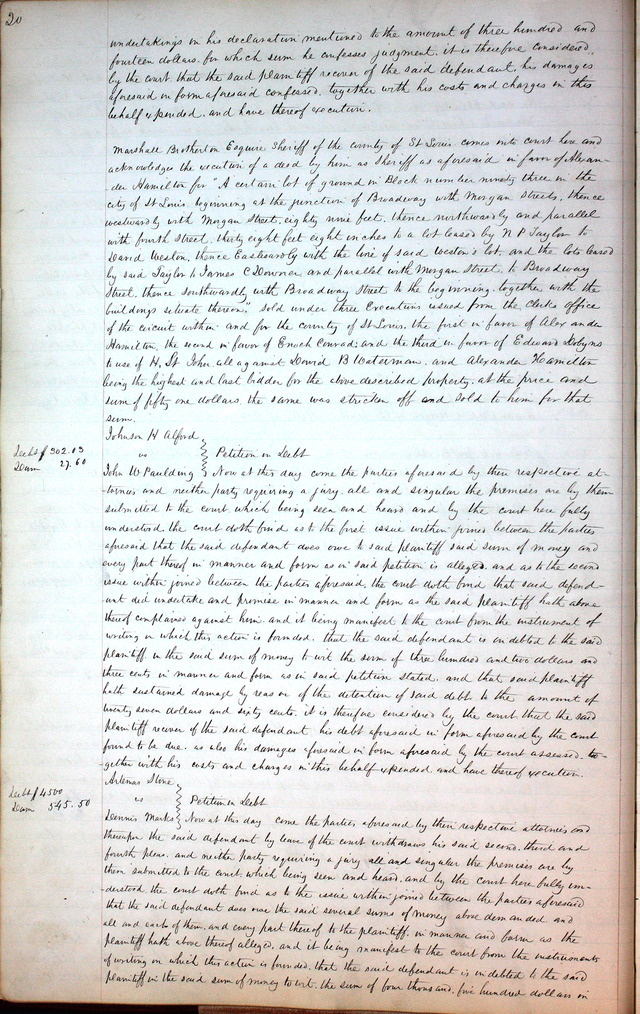 20
undertakings in his declaration mentioned to the amount of three hundred and
fourteen dollars. for which sum he confesses judgment. it is therefore considered
by the court. that the said plaintiff recover of the said defendant. his damages
aforesaid in form aforesaid confessed. together with his costs and charges in this
behalf expended. and have thereof execution.
Marshall Brotherton Esquire Sheriff of the county of St Louis comes into court here and
acknowledges the execution of a deed by him as sheriff as aforesaid in favor of Alexan-
der Hamilton for "A certain lot of ground in Block number ninety three in the
city of St Louis. beginning at the junction of Broadway with Morgan Streets, thence
westwardly with Morgan Street. eighty nine feet. thence northwardly and parallel
with fourth Street. thirty eight feet eight inches to a lot leased by N P Taylor to
David Weston, thence Eastwardly with the line of said Weston's lot. and the lots leased
by said Taylor to James C Downer and parallel with Morgan Street. to Broadway
Street. thence southwardly with Broadway Street to the beginning. together with the
buildings situate thereon." sold under three Executions issued from the clerks office
of the circuit within and for the county of St Louis, the first in favor of Alexander
Hamilton, the second in favor of Enoch Conrad; and the third in favor of Edward Dobyns
to use of H. St John. all against David B Waterman and Alexander Hamilton
being the highest and last bidder for the above described property. at the price and
sum of fifty one dollars. the same was stricken off and sold to him for that
sum.
Johnson H Alford
Debt $ 302.03 vs Petition in Debt
Dam 27.60
John W Paulding Now at this day come the parties aforesaid by their respective at-
tornies and neither party requiring a jury. all and singular the premises are by them
submitted to the court which being seen and heard and by the court here fully
understood. the court doth find as to the first issue within joined between the parties
aforesaid that the said defendant does owe to said plaintiff said sum of money and
every part thereof in manner and form as in said petition is alleged. and as to the second
issue within joined between the parties aforesaid. the court doth find that said defend-
ant did undertake and promise in manner and form as the said plaintiff hath above
thereof complained against him. and it being manifest to the court from the instrument of
writing on which this action is founded. that the said defendant is indebted to the said
plaintiff. in the said sum of money to wit the sum of three hundred and two dollars and
three cents in manner and form as in said petition stated. and that said plaintiff
hath sustained damage by reason of the detention of said debt. to the amount of
twenty seven dollars and sixty cents. it is therefore considered by the court that the said
plaintiff recover of the said defendant his debt aforesaid in form aforesaid by the court
found to be due. as also his damages aforesaid in form aforesaid by the court assessed. to-
gether with his costs and charges in this behalf expended and have thereof execution.
Artemas Stone
Debt $ 4500 vs Petition in Debt
Dam 545.50
Dennis Marks Now at this day come the parties aforesaid by their respective attornies and
thereupon the said defendant by leave of the court withdraws his said second. third and
fourth pleas. and neither party requiring a jury all and singular the premises are by
them submitted to the court. which being seen and heard. and by the court here fully un-
derstood. the court doth find as to the issue within joined between the parties aforesaid
that the said defendant does owe the said several sums of money above demanded and
all and each of them. and every part thereof to the plaintiff. in manner and form as the
plaintiff hath above thereof alleged. and it being manifest to the court from the instruments
of writing on which this action is founded. that the said defendant is indebted to the said
plaintiff in the said sum of money to wit. the sum of four thousand. five hundred dollars in